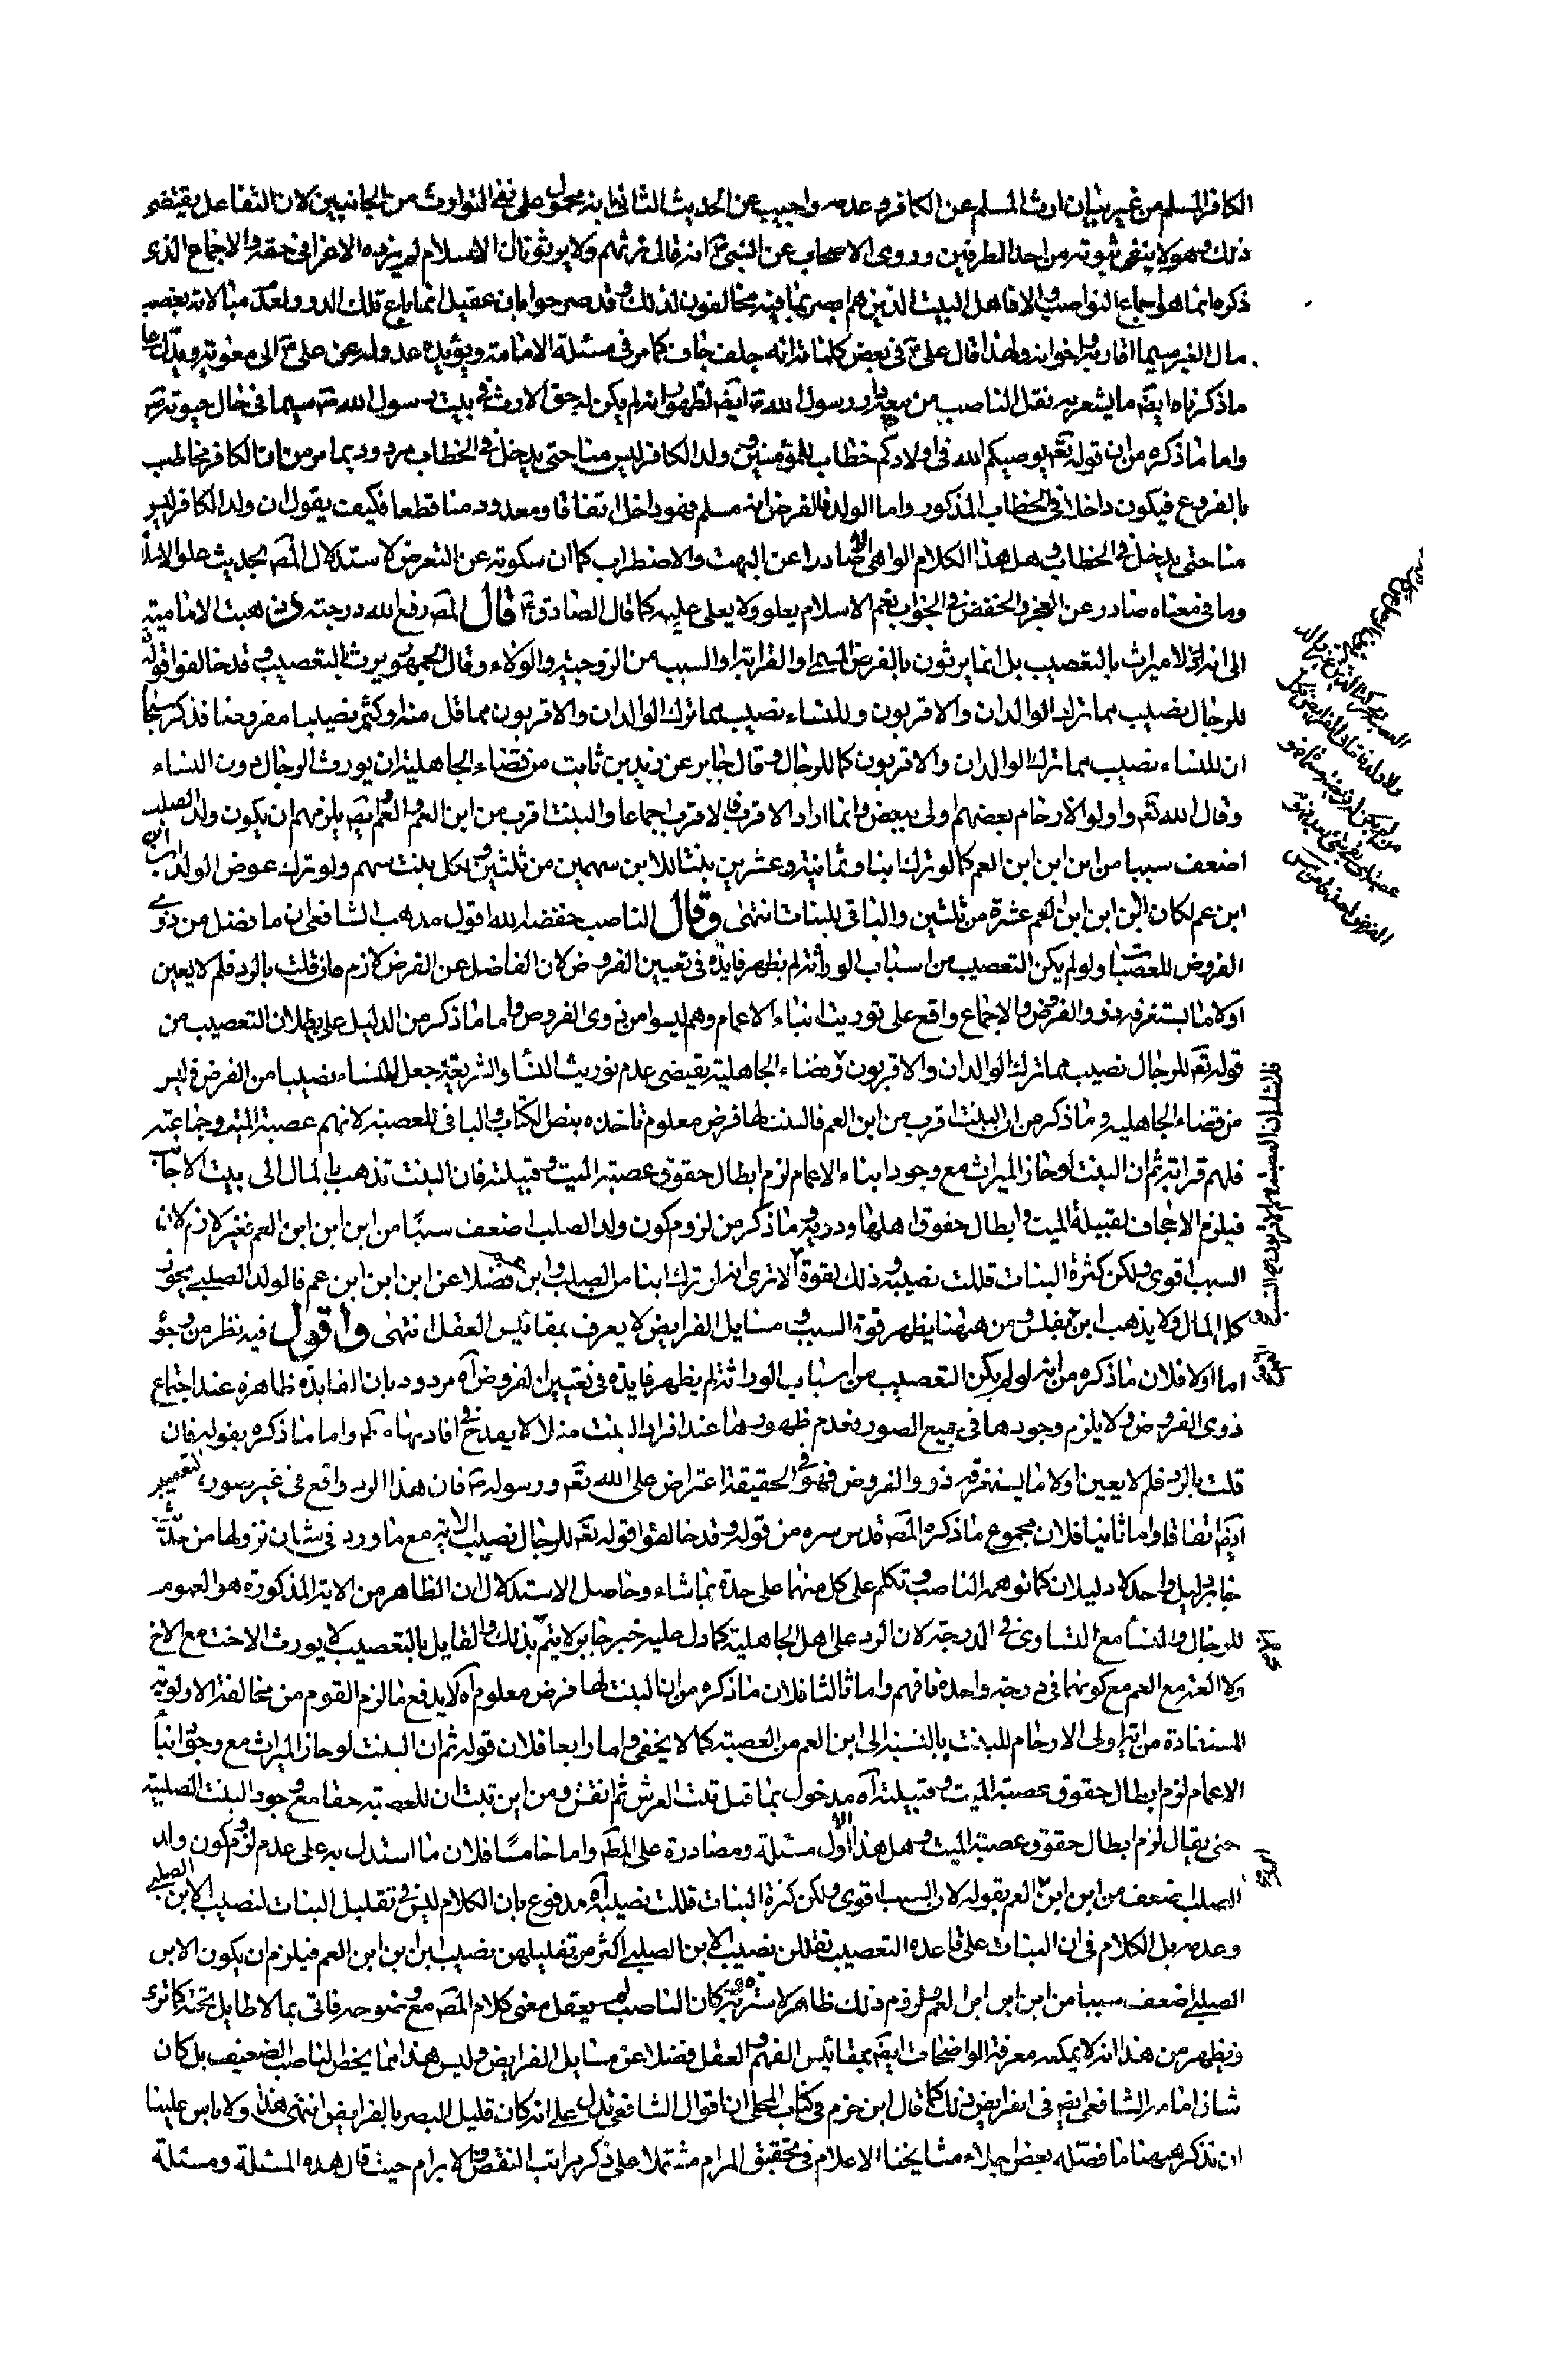 الكافر المسلم من غير بيان ارث المسلم عن الكافر وعدمه واجيب عن الحديث الثاني بانه محمول على نفي التوارث من الجانبين لان التفاعل يقتضي
ذلك وهو لا ينفي ثبوته من احد الطرفين وروى الاصحاب عن النبي ص انه قال نرثهم ولا يرثونا ان الاسلام لم يزده الا عزا في حقه والاجماع الذي
ذكره انما هو اجماع النواصب والا فاهل البيت الذين هم ابصر بما فيه مخالفون لذلك وقد صرحوا بان عقيل انما باع تلك الدور ولعله
مال الغير سيما اقاربه واخوانه ولهذا قال علي ع في بعض كلماته انه جلف جاف كما مر في مسئلة الامامة ويؤيده عدوله عن علي ع الى معوية ويدل على
ما ذكرناه ايض ما يشعر به نقل الناصب من رسول الله ص ايض لظهور انه لم يكن له حق الارث في بيت رسول الله ص سيما في حال حيوته ص
واما ما ذكره من ان قوله تع يوصيكم الله في اولادكم خطاب للمؤمنين وولد الكافر ليس منا حتى يدخل في الخطاب مردود بما مر من ان الكافر مخاطب
بالفروع فيكون داخلا في الخطاب المذكور واما الولد فالفرض انه مسلم فهو داخل اتفاقا ومعدود منا قطعا فكيف يقول ان ولد الكافر ليس
منا حتى يدخل في الخطاب وهل هذا الكلام الواهي الا صادرا عن البهت والاضطراب كما ان سكوته عن التعرض لاستدلال المص بحديث علو الاسلام
وما في معناه صادر عن العجز والخفض في الجواب نعم الاسلام يعلو ولا يعلى عليه كما قال الصادق ع قال المص رفع الله درجته ذهبت الامامية
الى انه لا ميراث بالتعصيب بل انما يرثون بالفرض المسمى او القرابة او السبب من الزوجية والولاء وقال الجمهور يورث بالتعصيب وقد خالفوا قوله
للرجال نصيب مما ترك الوالدان والاقربون وللنساء نصيب مما ترك الوالدان والاقربون مما قل منه او كثر نصيبا مفروضا فذكر سبحانه
ان للنساء نصيب مما ترك الوالدان والاقربون كما للرجال وقال جابر عن زيد بن ثابت من قضاء الجاهلية ان يورث الرجال دون النساء
وقال الله تع واولو الارحام بعضهم اولى ببعض وانما اراد الاقرب فالاقرب اجماعا والبنت اقرب من ابن العم والعم ايض يلزمهم ان يكون ولد الصلب
اضعف سببا من ابن ابن ابن العم كما لو ترك ابنا وثمانية وعشرين بنتا للابن سهمين من ثلثين ولكل بنت سهم ولو ترك عوض الولد ابن ابن
ابن عم لكان لابن ابن ابن العم عشرة من ثلثين والباقي للبنات انتهى وقال الناصب خفضه الله اقول مذهب الشافعي ان ما فضل من ذوي
الفروض للعصبات ولو لم يكن التعصيب من اسباب الوراثة لم يظهر فايدة في تعيين الفروض لان الفاضل عن الفرض لازم فان قلت بالرد فلم لا يعين
اولا ما يستغرقه ذوو الفروض والاجماع واقع على توريث ابناء الاعمام وهم ليسوا من ذوي الفروض واما ما ذكر من الدليل على بطلان التعصيب من
قوله تع للرجال نصيب مما ترك الوالدان والاقربون وقضاء الجاهلية يقتضي عدم توريث النساء والشريعة جعل للنساء نصيبا من الفرض وليس
من قضاء الجاهلية وما ذكر من ان البنت اقرب من ابن العم فالبنت لها فرض معلوم تاخذه بنص الكتاب والباقي للعصبة لانهم عصبة الميت وجماعته
فلهم قرابة ثم ان البنت لو حاز الميراث مع وجود ابناء الاعمام لزم ابطال حقوق عصبة الميت وقبيلته فان البنت تذهب بالمال الى بيت الاجانب
فيلزم الاجحاف لقبيلة الميت وابطال حقوق اهلها وذويه وما ذكر من لزوم كون ولد الصلب اضعف سببا من ابن ابن ابن العم فغير لازم لان
السبب اقوى ولكن كثرة البنات قللت نصيبه وذلك لقوة الا ترى انه لو ترك ابنا من الصلب وابن عم فضلا عن ابن ابن ابن عم فالولد الصلبي يحوز
كل المال ولا يذهب ابن عم بفلس ومن ههنا يظهر قوة السبب ومسايل الفرايض لا يعرف بمقائيس العقل انتهى واقول فيه نظر من وجوه
اما اولا فلان ما ذكره من انه لو لم يكن التعصيب من اسباب الوراثة لم يظهر فايدة في تعيين الفروض اه مردود بان الفايدة ظاهرة عند اجتماع
ذوي الفروض ولا يلزم وجودها في جميع الصور فعدم ظهورها عند افراد البنت مثلا لا يقدح في افادتها واما ما ذكره بقوله فان
قلت بالرد فلم لا يعين اولا ما يستغرقه ذوو الفروض فهو في الحقيقة اعتراض على الله تع ورسوله ص فان هذا الرد واقع في غير صورة التعصيب
ايض اتفاقا واما ثانيا فلان مجموع ما ذكره المص قدس سره من قوله وقد خالفوا قوله تع للرجال نصيب الاية مع ما ورد في شان نزولها من
جابر دليل واحد لا دليلان كما توهمه الناصب وتكلم على كل منهما على حدة بما شاء وحاصل الاستدلال ان الظاهر من الاية المذكورة هو العموم
للرجال والنساء مع التساوي في الدرجة لان الرد على اهل الجاهلية كما دل عليه خبر جابر لا يتم بذلك والقايل بالتعصيب لا يورث الاخت مع الاخ
ولا العمة مع العم مع كونهما في درجة واحدة فافهم واما ثالثا فلان ما ذكره من ان البنت لها فرض معلوم اه لا يدفع ما لزم القوم من مخالفة الاولوية
المستفادة من اية اولي الارحام للبنت بالنسبة الى ابن العم من العصبة كما لا يخفى واما رابعا فلان قوله ثم ان البنت لو حاز الميراث مع وجود ابناء
الاعمام لزم ابطال حقوق عصبة الميت وقبيلته اه مدخول بما قيل ثبت العرش ثم انقش ومن اين ثبت ان للعصبة حقا مع وجود البنت الصلبية
حتى يقال لزم ابطال حقوق عصبة الميت وهل هذا الا اول مسئلة ومصادرة على المط واما خامسا فلان ما استدل به على عدم لزوم كون ولد
الصلب اضعف من ابن ابن العم بقوله لان السبب اقوى ولكن كثرة البنات قللت نصيبه اه مدفوع بان الكلام ليس في تقليل البنات لنصيب الابن الصلبي
وعدمه بل الكلام في ان البنات على قاعدة التعصيب تقللن نصيب الابن الصلبي اكثر من تقليلهن نصيب ابن ابن ابن العم فيلزم ان يكون الابن
الصلبي اضعف سببا من ابن ابن ابن العم ولزوم ذلك ظاهر لا سترة به وكان الناصب لم يعقل معنى كلام المص مع وضوحه فاتى بما لا طايل تحته كما ترى
ويظهر من هذا انه لا يمكنه معرفة الواضحات ايض بمقائيس الفهم والعقل فضلا عن مسايل الفرايض وليس هذا مما يخص الناصب الضعيف بل كان
شان امامه الشافعي ايض في الفرايض ذلك كما قال ابن حزم في كتاب المحلى ان اقوال الشافعي تدل على انه كان قليل البصر بالفرايض انتهى هذا ولا باس علينا
ان نذكر ههنا ما فصله بعض اجلاء مشايخنا الاعلام في تحقيق المرام مشتملا على ذكر مراتب النقض والابرام حيث قال هذه المسئلة ومسئلة